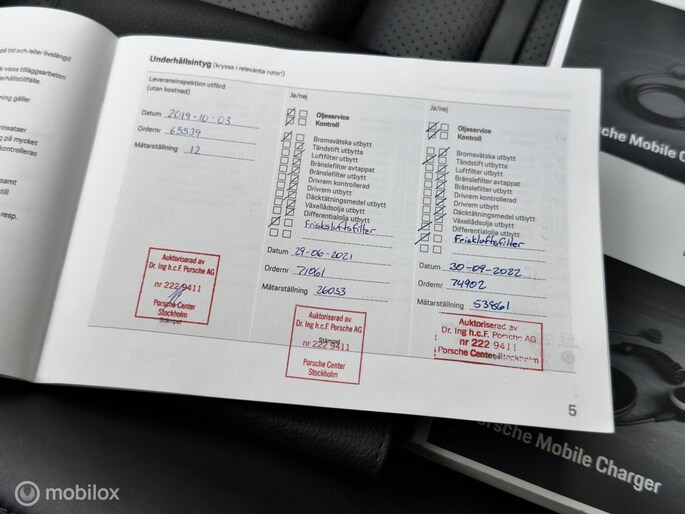 på tid och/eller livslängd
Underhållsintyg (kryssa i relevanta rutor!)
Leveransinspektion utförd
(utan kostnad)
Datum 2019-10-03
Ordernr 65539
Mätarställning 12
Auktoriserad av
Dr. Ing h.c.F Porsche AG
nr 222 9411
Porsche Center
Stockholm
Stämpel
Ja/nej
Oljeservice
Kontroll
Bromsvätska utbytt
Tändstift utbytta
Luftfilter utbytt
Bränslefilter avtappat
Bränslefilter utbytt
Drivrem kontrollerad
Drivrem utbytt
Däcktätningsmedel utbytt
Växellådsolja utbytt
Differentialolja utbytt
Friskluftsfilter
Datum 29-06-2021
Ordernr 71061
Mätarställning 26033
Stämpel
Auktoriserad av
Dr. Ing h.c. F Porsche AG
nr 222 9411
Porsche Center
Stockholm
Ja/nej
Oljeservice
Kontroll
Bromsvätska utbytt
Tändstift utbytta
Luftfilter utbytt
Bränslefilter avtappat
Bränslefilter utbytt
Drivrem kontrollerad
Drivrem utbytt
Däcktätningsmedel utbytt
Växellådsolja utbytt
Differentialolja utbytt
Friskluftsfilter
Datum 30-09-2022
Ordernr 74902
Mätarställning 53861
Auktoriserad av
Dr. Ing h.c.F. Porsche AG
nr 222 9411
Porsche Center Stockholm
5
rsche Mobile Charger
rsche Mobile Charger
mobilox